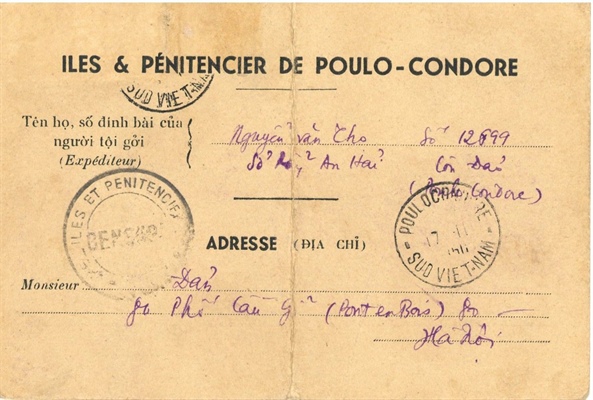 ILES & PÉNITENCIER DE POULO-CONDORE
SUD VIET-NAM
Tên họ, số đinh bài của
người tội gởi
(Expéditeur)
Nguyễn văn Cho Số 12899
Sở Rẫy An Hải Côn Đảo
(Poulo Condore)
ILES ET PENITENCIER
CENSURE
POULO CONDORE
17
SUD VIET-NAM
ADRESSE (ĐỊA CHỈ)
Monsieur Dần
90 Phố Cầu Gỗ (Pont en Bois) 90
Hà Nội